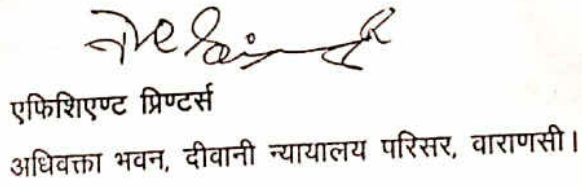 एफिशिएण्ट प्रिण्टर्स
अधिवक्ता भवन, दीवानी न्यायालय परिसर, वाराणसी।